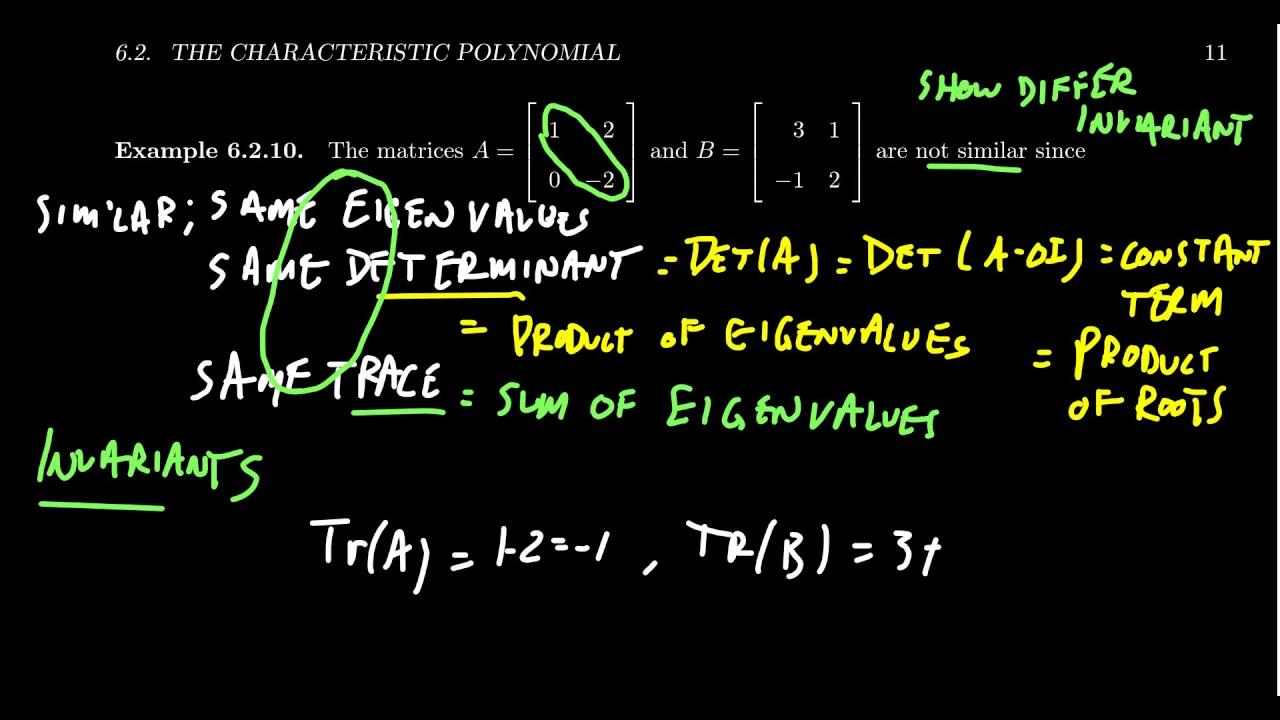 6.2. THE CHARACTERISTIC POLYNOMIAL 11
SHOW DIFFER
INVARIANT
Example 6.2.10. The matrices A = [1 2; 0 −2] and B = [3 1; −1 2] are not similar since
SIMILAR; SAME EIGENVALUES
SAME DETERMINANT = DET(A) = DET(A-0I) = CONSTANT
TERM
= PRODUCT OF EIGENVALUES = PRODUCT
OF ROOTS
SAME TRACE = SUM OF EIGENVALUES
INVARIANTS
Tr(A) = 1-2=-1, TR(B) = 3+